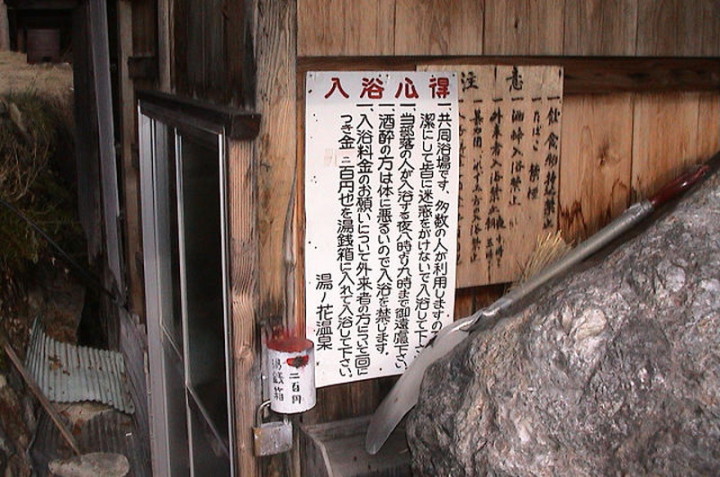 入浴心得
一共同浴場です、多数の人が利用しますの
潔にして皆に迷惑をかけないで入浴して下
一当部落の人が入浴する夜八時より九時まで御遠慮下さい
一酒酔の方は体に悪るいので入浴を禁じます。
一入浴料金のお願いについて外来者の方は一回に
つき金二百円也を湯銭箱に入れて入浴して下さい。
湯ノ花温泉
注意
一飲食物持込禁止
一たばこ禁煙
一酒酔入浴禁止
一外来者入浴禁止
二百円
湯銭箱